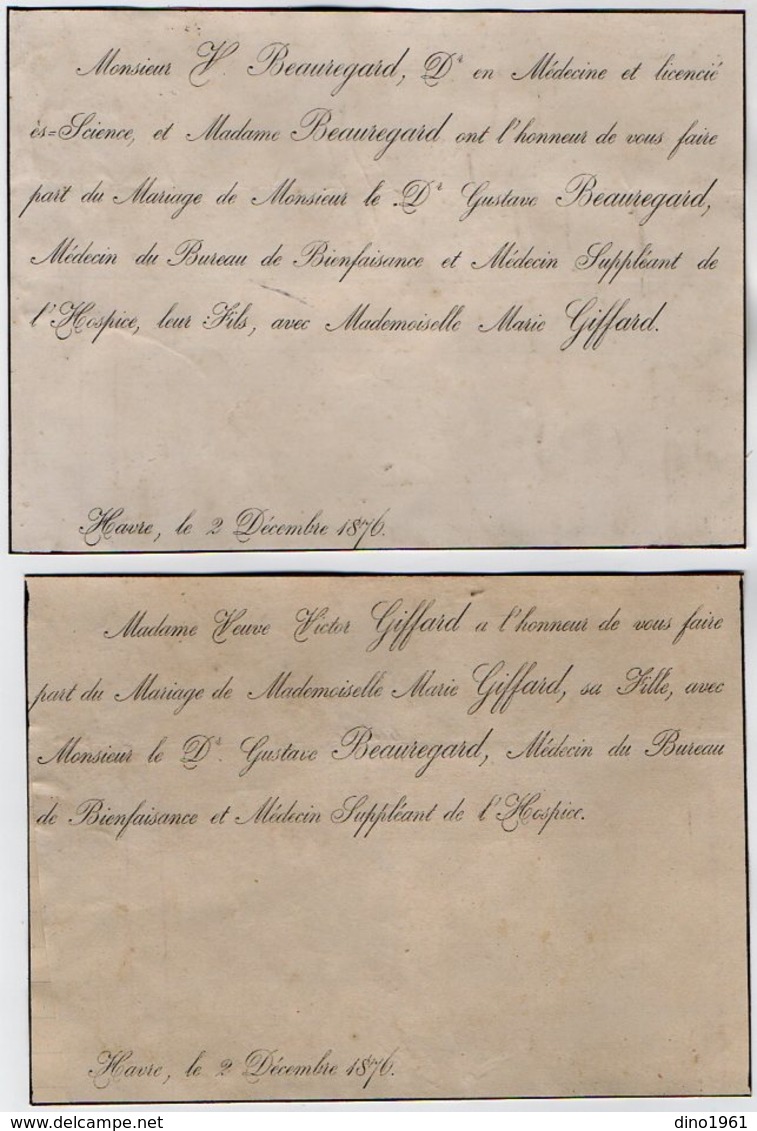 Monsieur V. Beauregard, Dr en Médecine et licencié
ès=Science, et Madame Beauregard ont l'honneur de vous faire
part du Mariage de Monsieur le Dr Gustave Beauregard,
Médecin du Bureau de Bienfaisance et Médecin Suppléant de
l'Hospice, leur Fils, avec Mademoiselle Marie Giffard.
Havre, le 2 Décembre 1876.
Madame Veuve Victor Giffard a l'honneur de vous faire
part du Mariage de Mademoiselle Marie Giffard, sa Fille, avec
Monsieur le Dr. Gustave Beauregard, Médecin du Bureau
de Bienfaisance et Médecin Suppléant de l'Hospice.
Havre, le 2 Décembre 1876.
dino1961